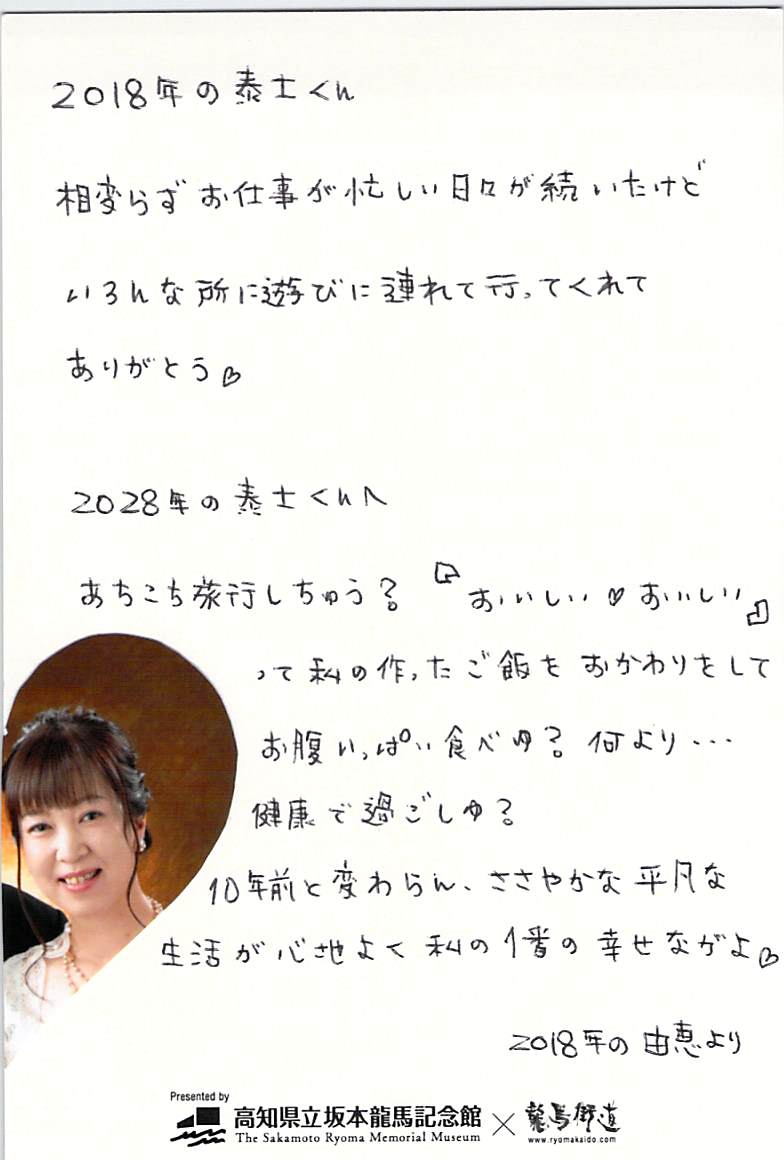 2018年の泰士くん
相変らずお仕事が忙しい日々が続いたけど
いろんな所に遊びに連れて行ってくれて
ありがとう♡
2028年の泰士くんへ
あちこち旅行しちゅう？『おいしい♡おいしい』
って私の作ったご飯をおかわりをして
お腹いっぱい食べゆ？何より・・・
健康で過ごしゆ？
10年前と変わらん、ささやかな平凡な
生活が心地よく私の1番の幸せながよ♡
2018年の由恵より
Presented by
高知県立坂本龍馬記念館 × 龍馬街道
The Sakamoto Ryoma Memorial Museum
www.ryomakaido.com